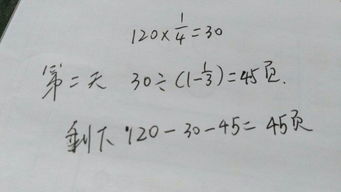 120×1/4=30
第二天 30÷(1-1/3)=45页.
剩下 120-30-45=45页